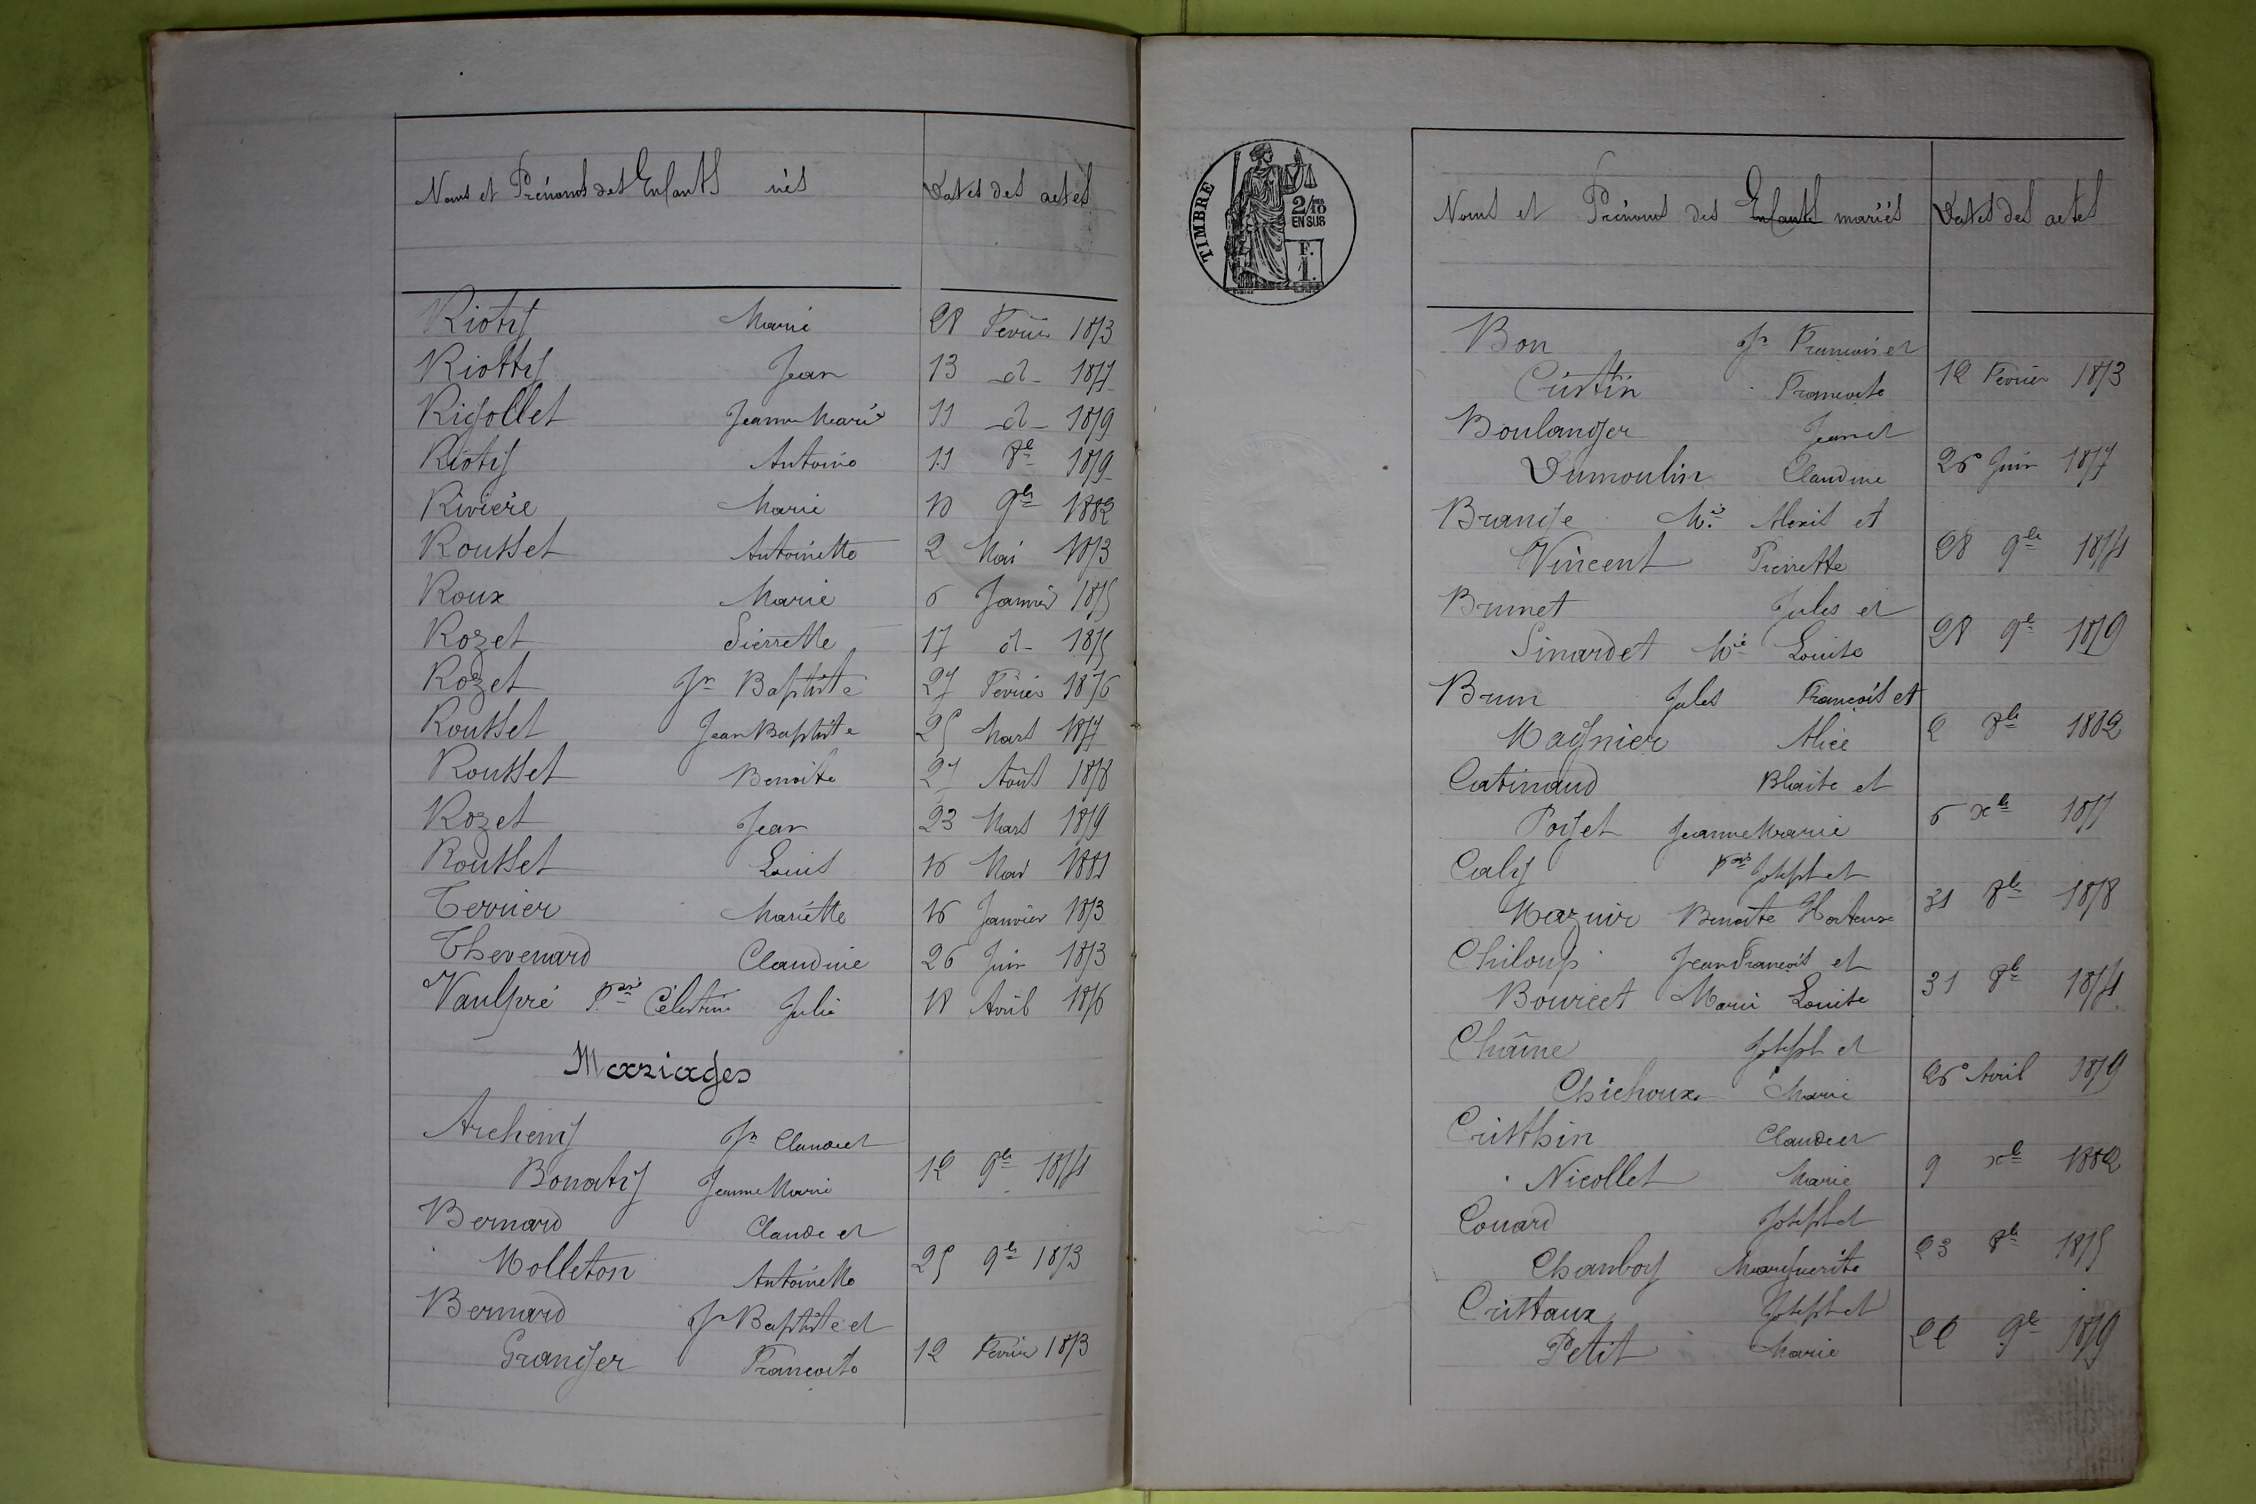 Noms et Prénoms des Enfants nés Dates des actes
Rioty Marie 28 Février 1873
Riotty Jean 13 -d- 1877
Rigollet Jeanne Marie 11 -d- 1879
Rioty Antoine 11 8e 1879
Rivière Marie 10 9bre 1882
Rousset Antoinette 2 Mai 1873
Roux Marie 6 Janvier 1875
Rozet Pierrette 17 d- 1875
Rozet Jn Baptiste 27 Février 1876
Rousset Jean Baptiste 25 Mars 1877
Rousset Benoite 27 Août 1878
Rozet Jean 23 Mars 1879
Rousset Louis 16 Mai 1881
Terrier Mariette 16 Janvier 1873
Thevenard Claudine 26 Juin 1873
Vaulpré Célestine Julie 18 Avril 1876
Mariages
Archeny Jn Claude et
Bonaty Jeanne Marie 12 9bre 1874
Bernard Claude et
Molleton Antoinette 25 9bre 1873
Bernard Jn Baptiste et
Granger Françoise 12 Février 1873
TIMBRE
2/10
EN SUS
F.
1.
Noms et Prénoms des Enfants mariés Dates des actes
Bon Jn François et
Cüttin Françoise 12 Février 1873
Boulanger Jean et
Dumoulin Claudine 26 Juin 1877
Brange Mie Alexis et
Vincent Pierrette 28 9bre 1874
Brunet Jules et
Sinardet Mie Louise 28 9e 1879
Brun Jules François et
Magnier Alice 2 8bre 1882
Catinaud Blaise et
Poyet Jeanne Marie 6 xbre
Caly Joseph et
Mazuir Benoîte Hortense 31 8bre 1878
Chiloup Jean François et
Bourcet Marie Louise 31 8bre 1874
Chaîne Joseph et
Chichoux Marie 26 Avril 1879
Claude et
Nicollet Marie 9 xbre 1882
Couard Joseph et
Chanboy Marguerite 23 8bre 1875
Joseph et
Petit Marie 22 9e 1879